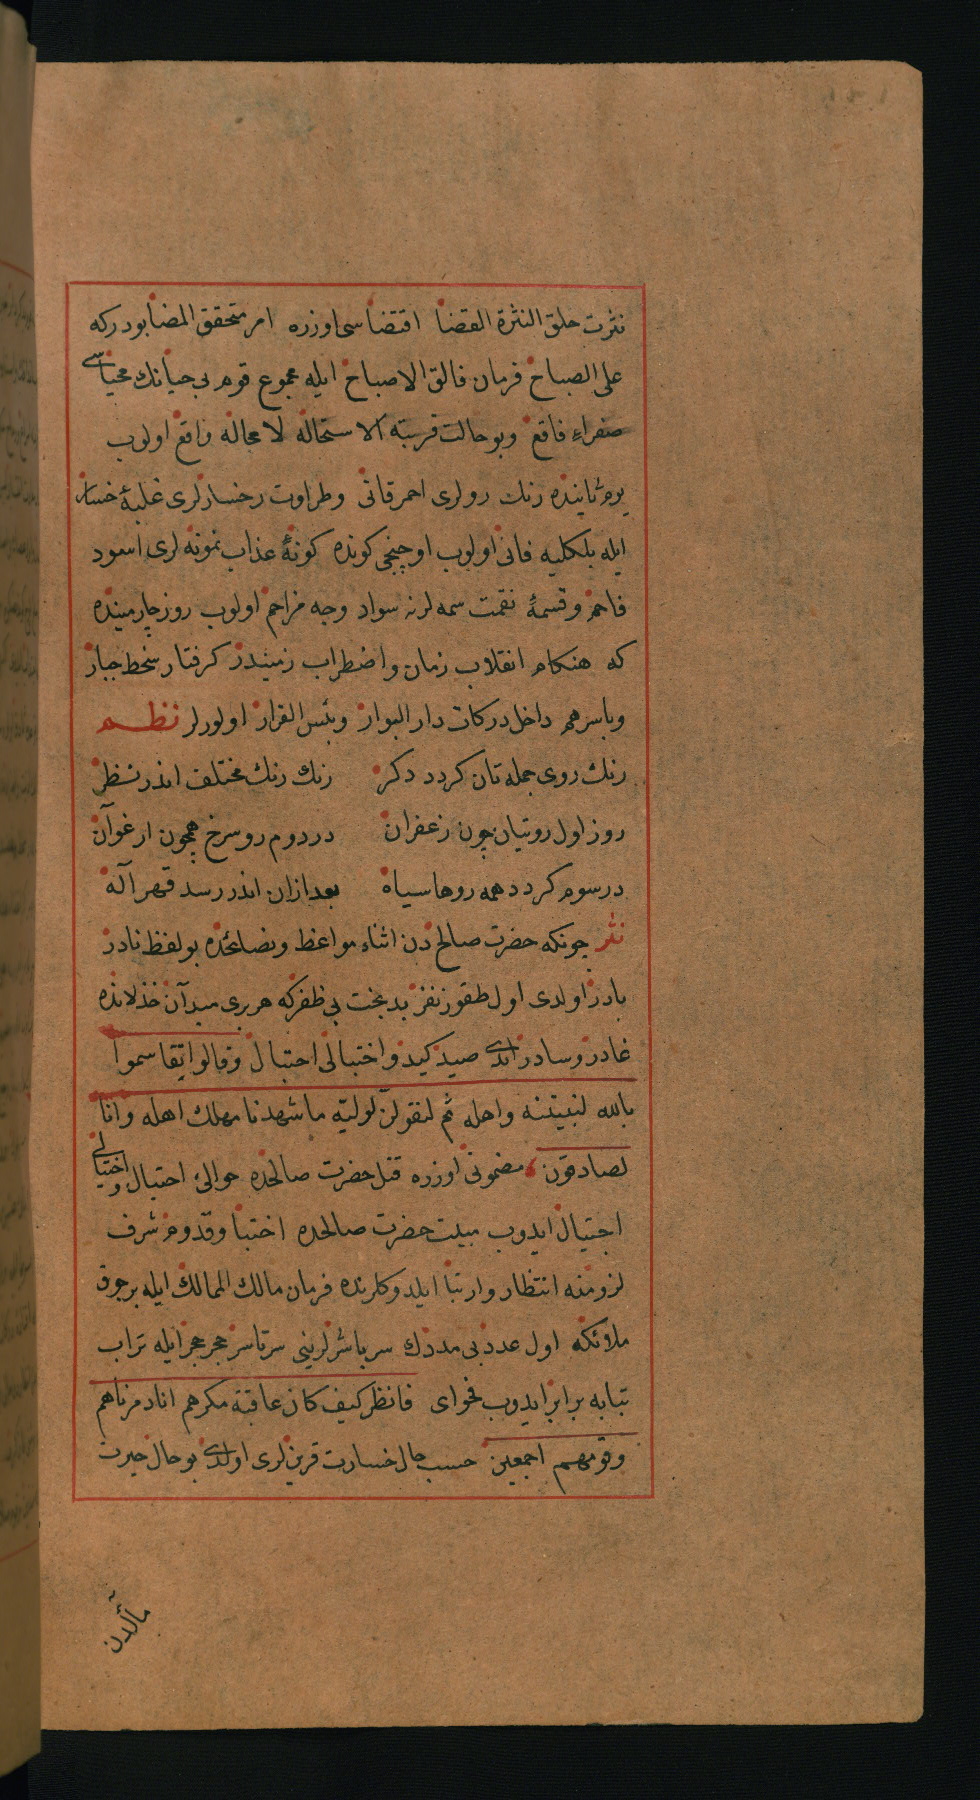 نثرت حلق النثرة القضا اقتضاسی اوزره امر متحقق المضا بودرکه
علی الصباح فرمان فالق الاصباح ایله مجموع قوم بی حیانك محیاسی
صفراء فاقع وبو حالت قریبة الاستحاله لا محاله واقع اولوب
یوم ثانیده رنك رولری احمر قانی وطراوت رخسارلری غلبهٔ خسار
ایله بلكلیه فانی اولوب اوچنجی کونده کونهٔ عذاب نمونه لری اسود
فاحم وقسمهٔ نقمت سمه لرنه سواد وجه مزاحم اولوب روز چارمینده
که هنکام انقلاب زمان واضطراب زمیندر کرفتار سخط جبار
وباسرهم داخل درکات دار البوار وبئس القرار اولورلر نظم
رنك روی جمله تان کردد دکر رنك رنك مختلف اندر نظر
روز اول رویتان چون زعفران در دوم رو سرخ همچون ارغوان
در سوم کردد همه روها سیاه بعد ازان اندر رسد قهر آله
نثر چونکه حضرت صالحدن اثناء مواعظ ونصائحده بو لفظ نادر
بادر اولدی اول طقوز نفر بدبخت بی ظفر که هر بری میدان خذلانده
غادر وسادر ایدی صید کید واختبالی احتبال وقالوا تقاسموا
بالله لنبیتنه واهله ثم لنقولن لولیه ما شهدنا مهلك اهله وانا
لصادقون مضمونی اوزره قتل حضرت صالحده حوالئ احتیال واختیالی
اجتیال ایدوب مبیت حضرت صالحده اختبا وقدوم شرف
لزومنه انتظار وارتبا ایلدوکلرنده فرمان مالك الممالك ایله بر جوق
ملائکه اول عدد بی مددك سر باشرلرینی سرتاسر حجر حجر ایله تراب
تبابه برابر ایدوب فحوای فانظر کیف کان عاقبة مکرهم انا دمرناهم
وقومهم اجمعین حسب حال خسارت قرینلری اولدی بو حال حیرت
مآلدن